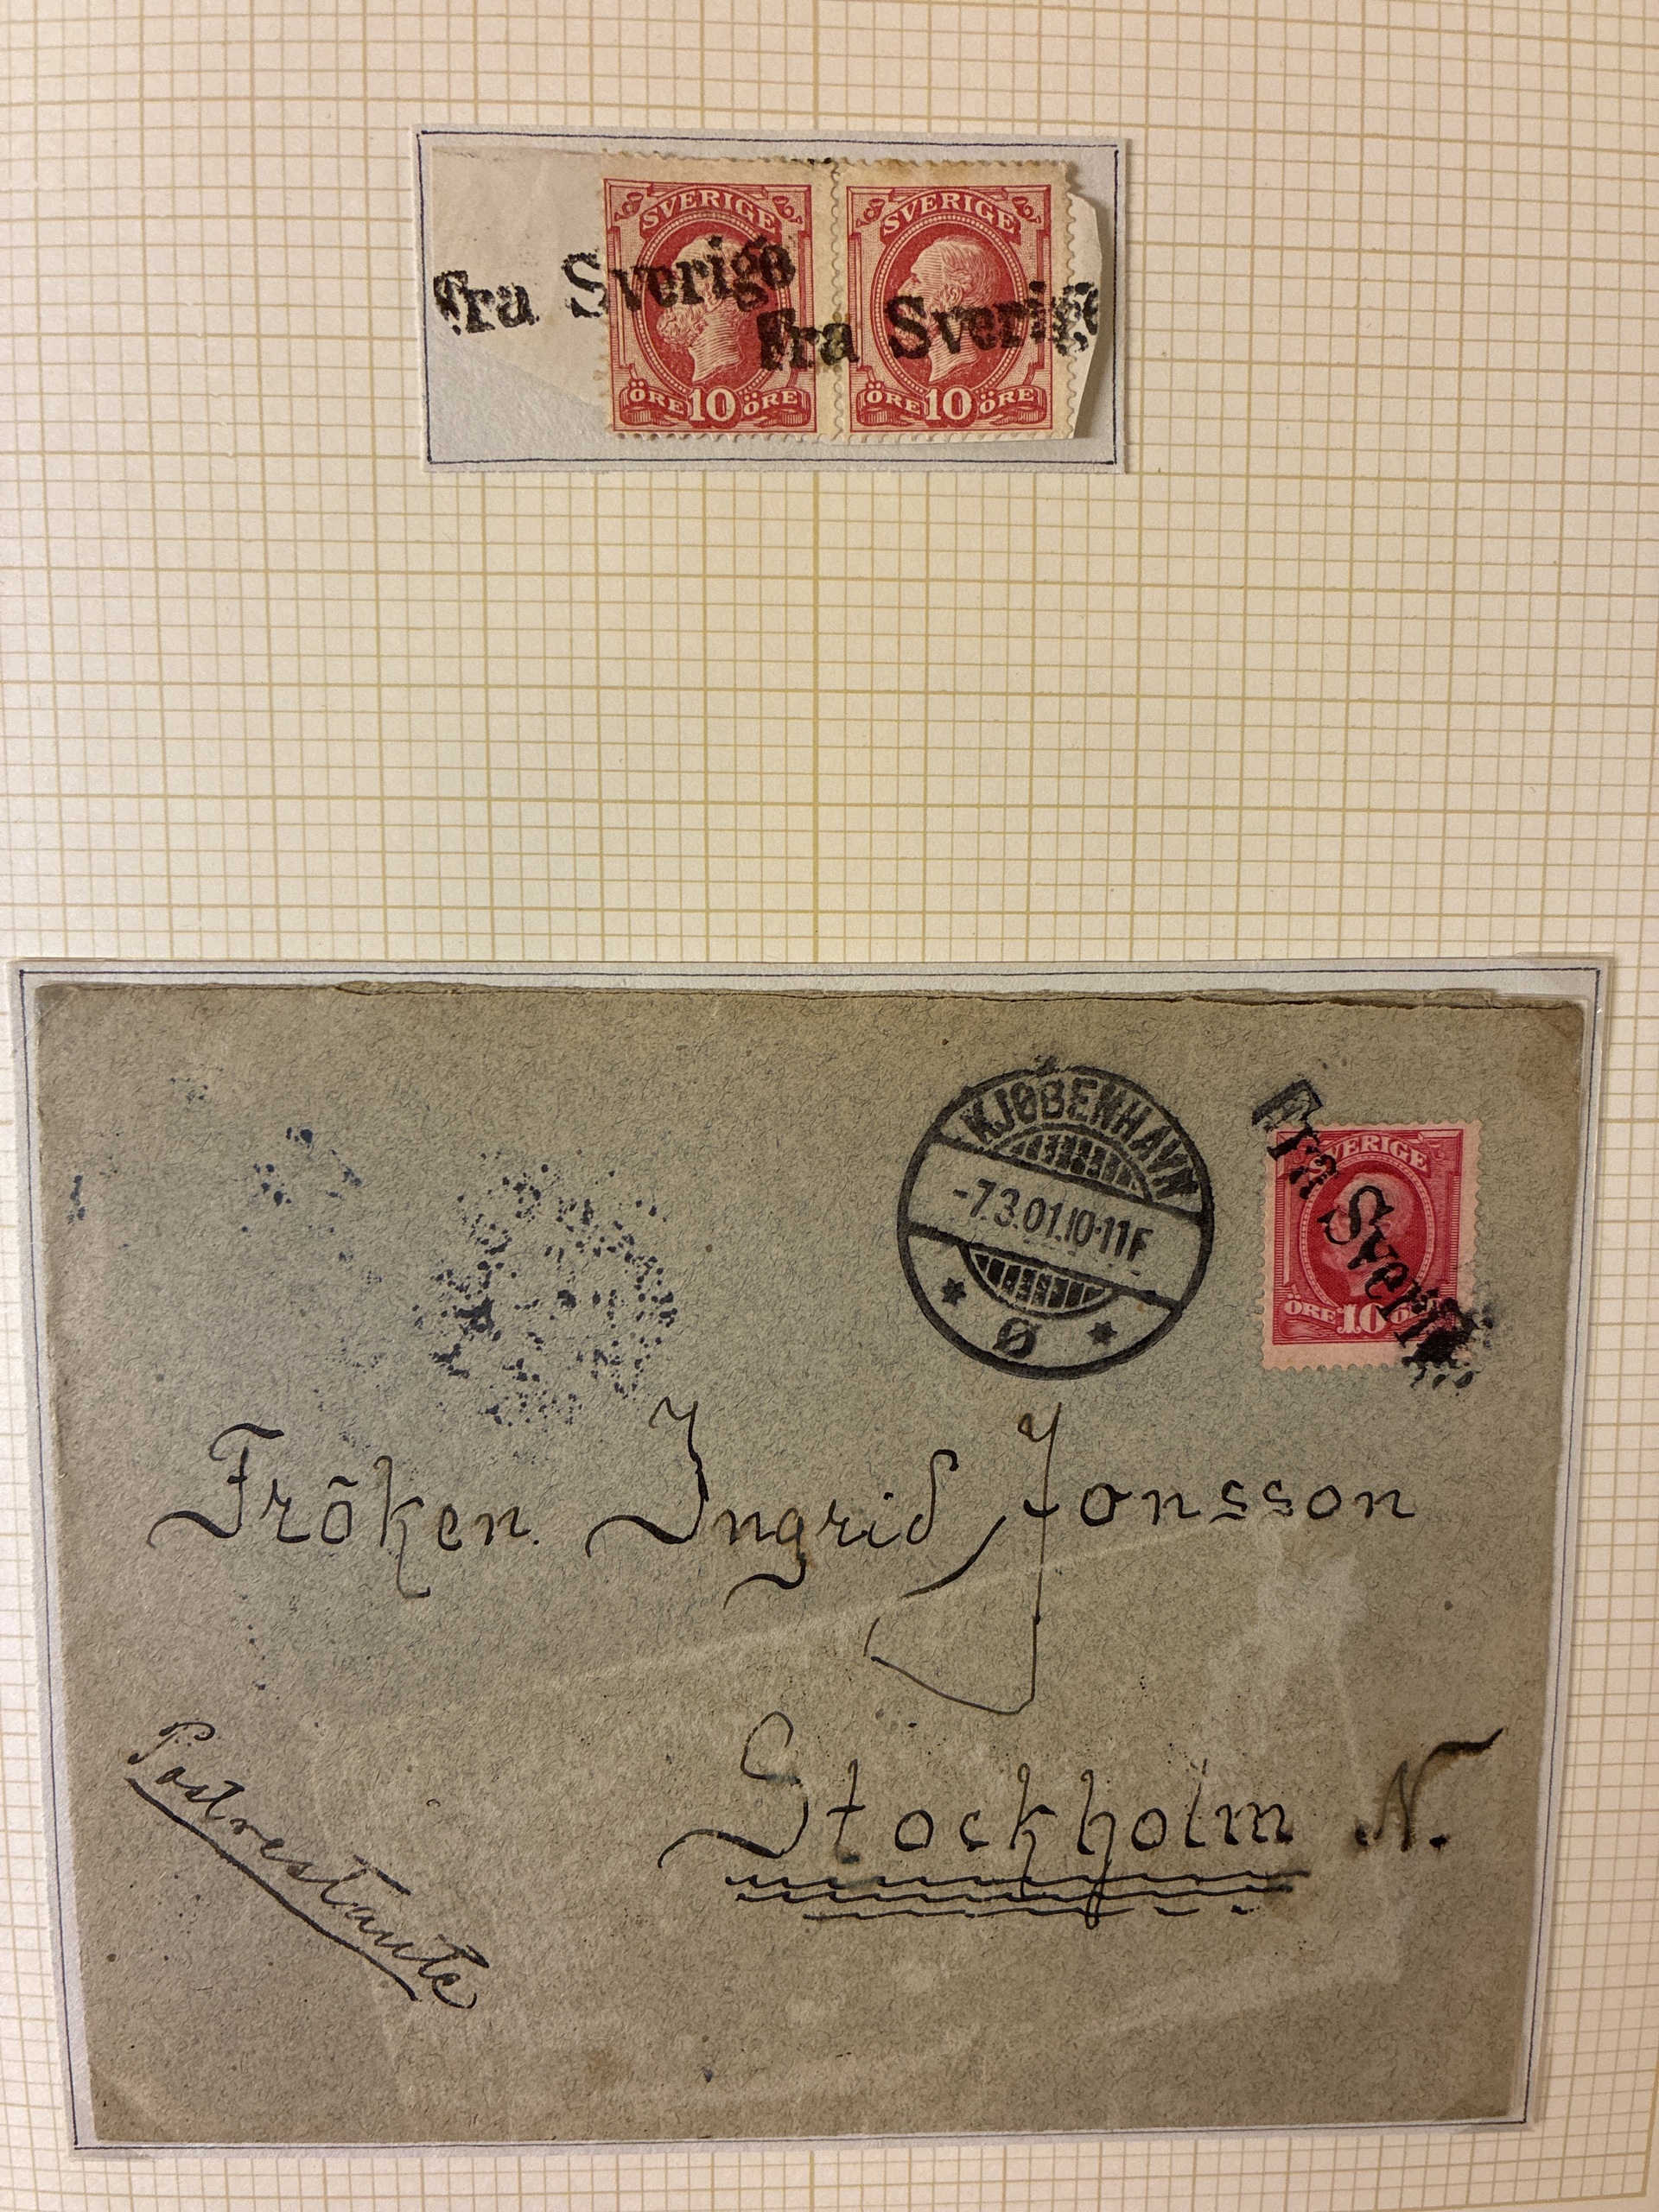 SVERIGE SVERIGE
fra Sverige
Fra Sverige
ÖRE 10 ÖRE ÖRE 10 ÖRE
KJØBENHAVN
-7.3.01.10-11F
Ø
SVERIGE
Fra Sverig
ÖRE 10
Fröken. Ingrid Jonsson
Stockholm N.
Postrestante